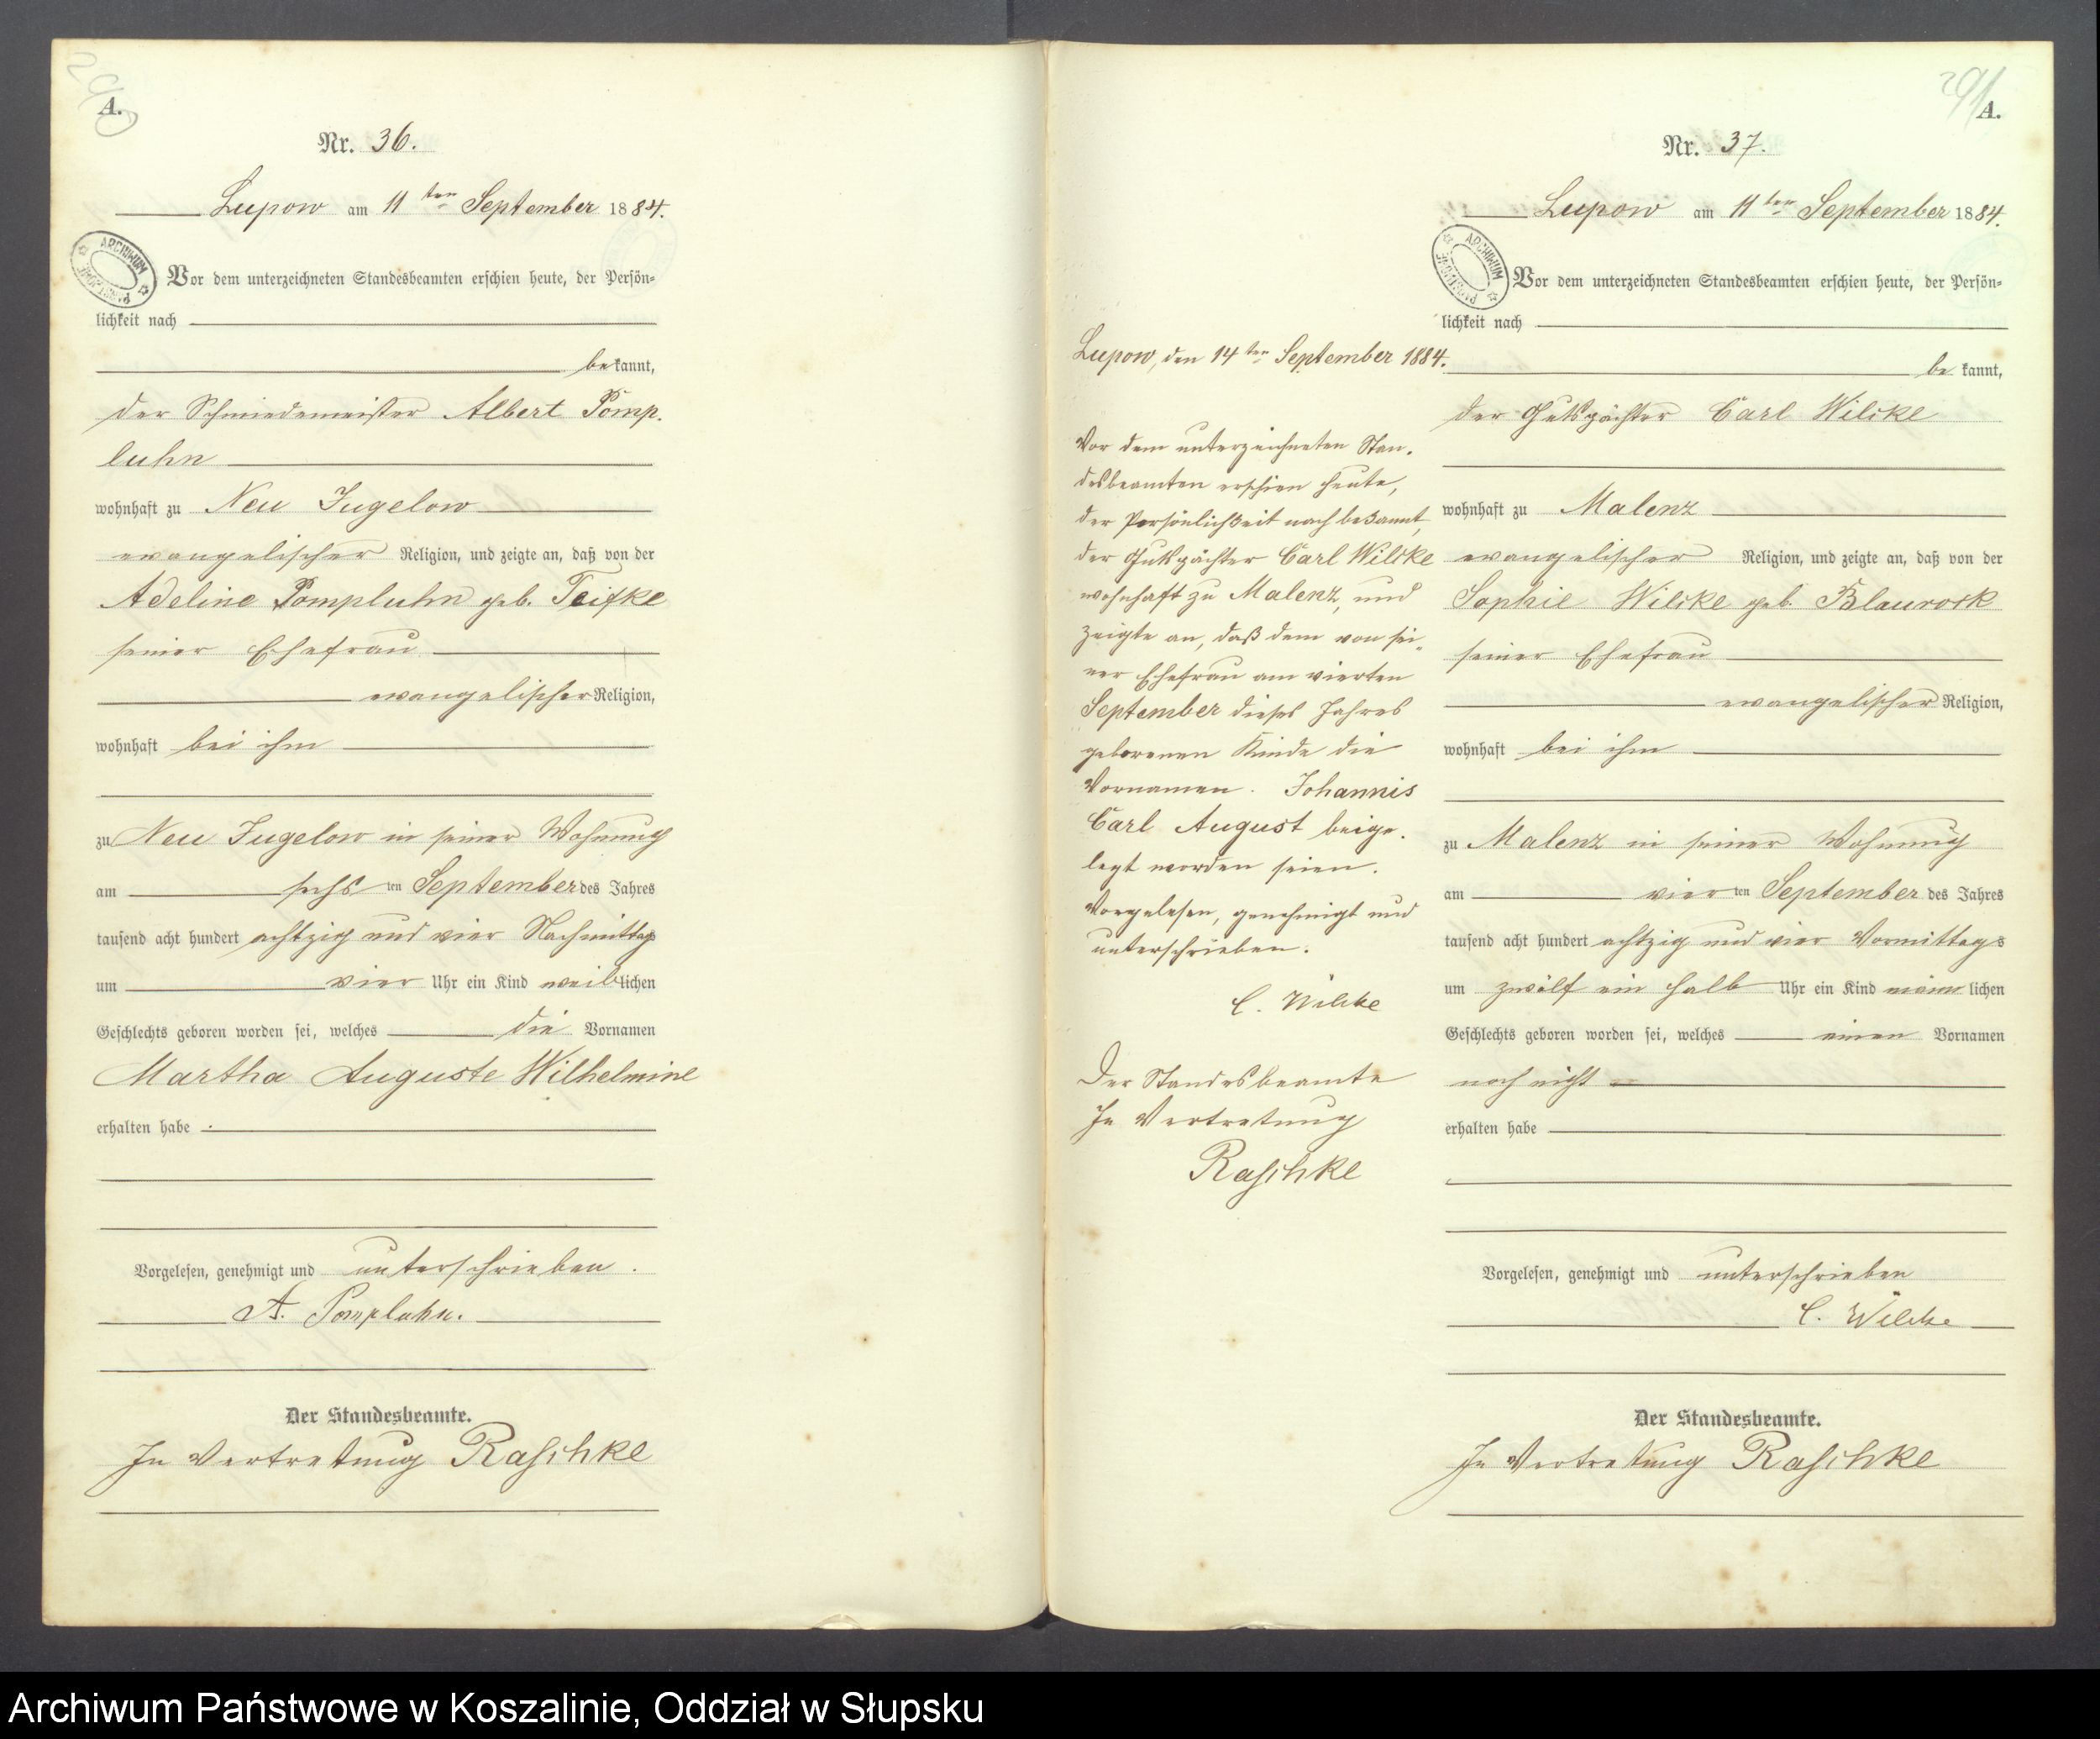 A.
Nr. 36.
Lupow am 11ten September 1884.
ARCHIWUM
Vor dem unterzeichneten Standesbeamten erschien heute, der Persön=
lichkeit nach
bekannt,
der Schmiedemeister Albert Pomp-
luhn
wohnhaft zu Neu Jugelow
evangelischer Religion, und zeigte an, daß von der
Adeline Pompluhn geb.
seiner Ehefrau
evangelischer Religion,
wohnhaft bei ihm
zu Neu Jugelow in seiner Wohnung
am sechsten September des Jahres
tausend acht hundert achtzig und vier Nachmittags
um vier Uhr ein Kind weiblichen
Geschlechts geboren worden sei, welches die Vornamen
Martha Auguste Wilhelmine
erhalten habe
Vorgelesen, genehmigt und unterschrieben.
A. Pompluhn.
Der Standesbeamte.
In Vertretung Raschke
Lupow, den 14ten September 1884.
Vor dem unterzeichneten Stan-
desbeamten erschien heute,
der Persönlichkeit nach bekannt,
der Gutspächter Carl Wilcke
wohnhaft zu Malenz, und
zeigte an, daß dem von sei-
ner Ehefrau am vierten
September dieses Jahres
geborenen Kinde die
Vornamen Johannis
Carl August beige-
legt worden seien.
Vorgelesen, genehmigt und
unterschrieben.
C. Wilcke
Der Standesbeamte
In Vertretung
Raschke
291
A.
Nr. 37.
Lupow am 11ten September 1884.
ARCHIWUM
Vor dem unterzeichneten Standesbeamten erschien heute, der Persön=
lichkeit nach
bekannt,
der Gutspächter Carl Wilcke
wohnhaft zu Malenz
evangelischer Religion, und zeigte an, daß von der
Sophie Wilcke geb. Blaurock
seiner Ehefrau
evangelischer Religion,
wohnhaft bei ihm
zu Malenz in seiner Wohnung
am vierten September des Jahres
tausend acht hundert achtzig und vier Vormittags
um zwölf ein halb Uhr ein Kind männlichen
Geschlechts geboren worden sei, welches einen Vornamen
noch nicht
erhalten habe
Vorgelesen, genehmigt und unterschrieben
C. Wilcke
Der Standesbeamte.
In Vertretung Raschke
Archiwum Państwowe w Koszalinie, Oddział w Słupsku